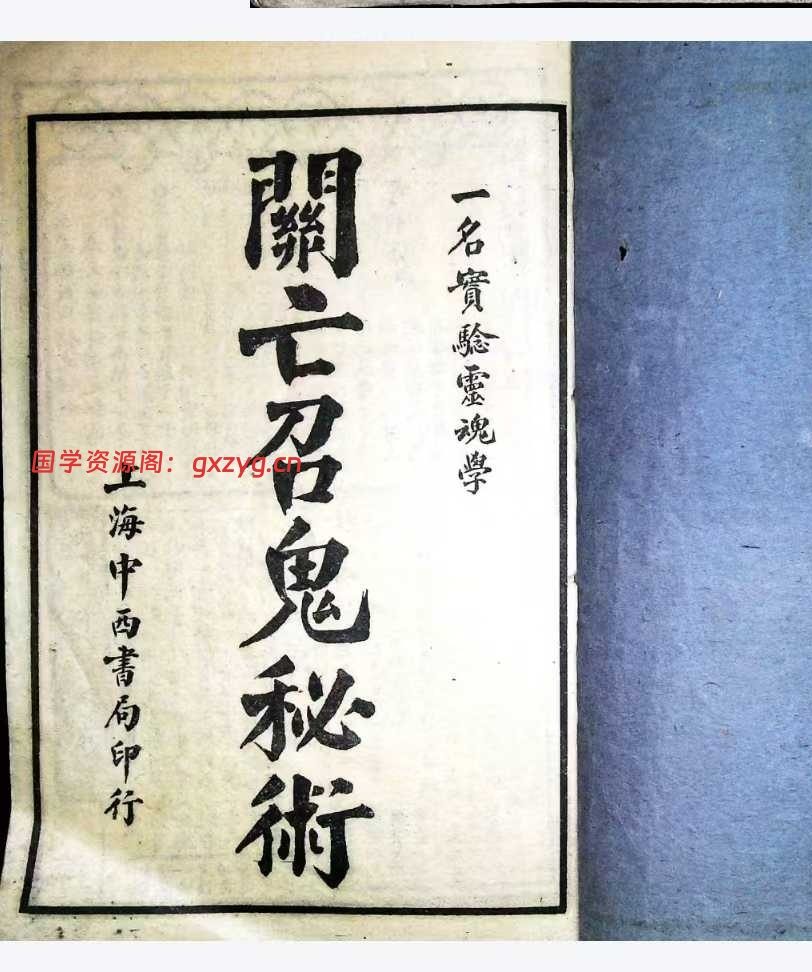 一名實驗靈魂學
關亡召鬼秘術
上海中西書局印行
国学资源阁：gxzyg.cn